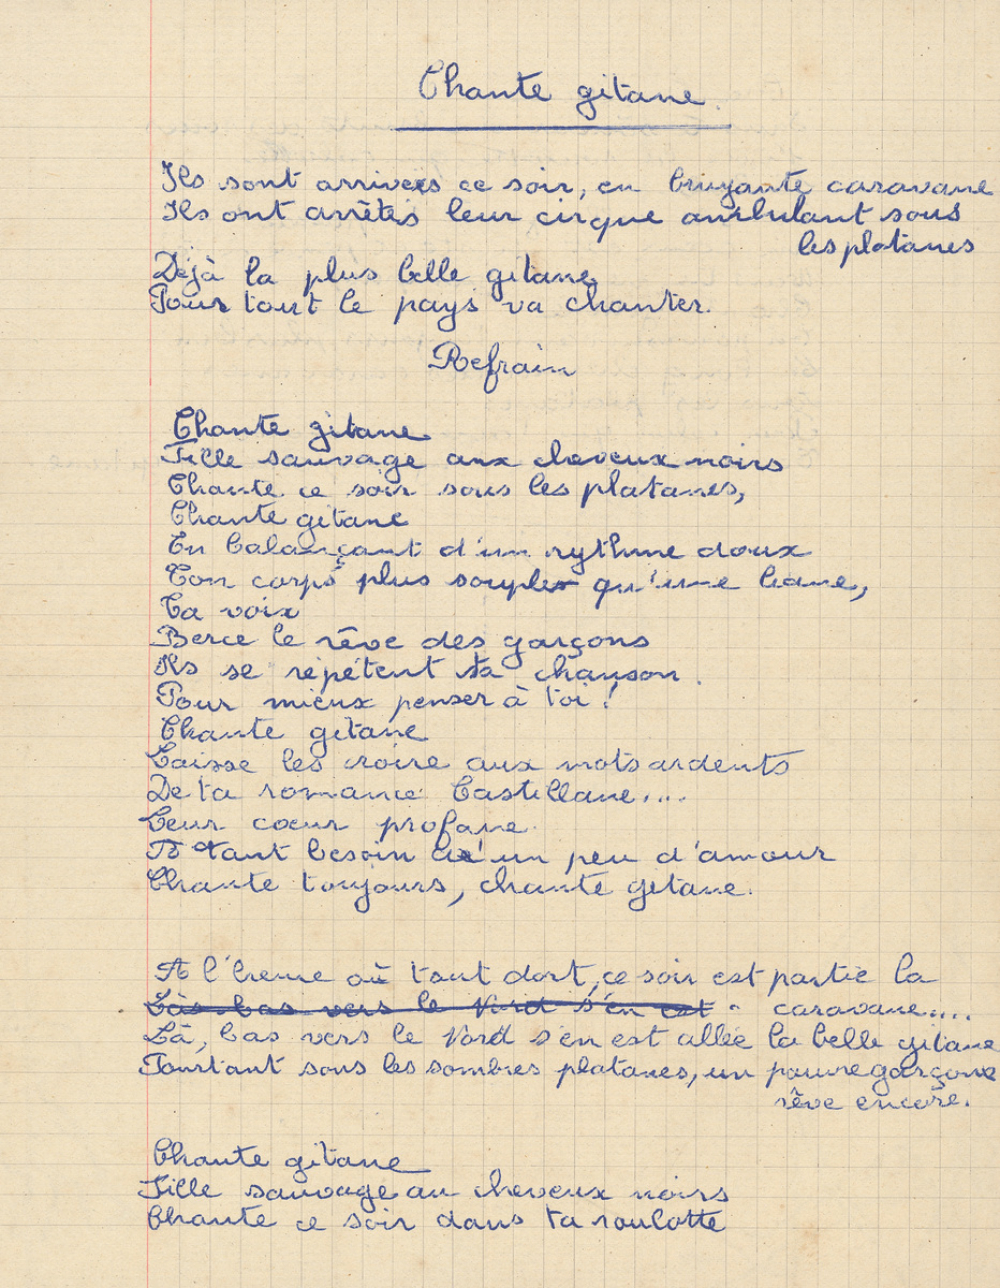 Chante gitane.
Ils sont arrivées ce soir, en bruyante caravane
Ils ont arrêtés leur cirque ambulant sous
les platanes
Déjà la plus belle gitane
Pour tout le pays va chanter.
Refrain
Chante gitane
Fille sauvage aux cheveux noirs
Chante ce soir sous les platanes,
Chante gitane
En balançant d'un rythme doux
Ton corps plus souple qu'une liane,
Ta voix
Berce le rêve des garçons
Ils se répétent ta chanson.
Pour mieux penser à toi!
Chante gitane
Laisse les croire aux mots ardents
De ta romance Castillane....
Leur cœur profane.
A tant besoin d'un peu d'amour
Chante toujours, chante gitane.
A l'heure où tout dort, ce soir est partie la
Làs bas vers le Nord s'en est caravane....
Là, bas vers le Nord s'en est allée la belle gitane
Pourtant sous les sombres platanes, un pauvre garçon
rêve encore.
Chante gitane
Fille sauvage au cheveux noirs
Chante ce soir dans ta roulotte